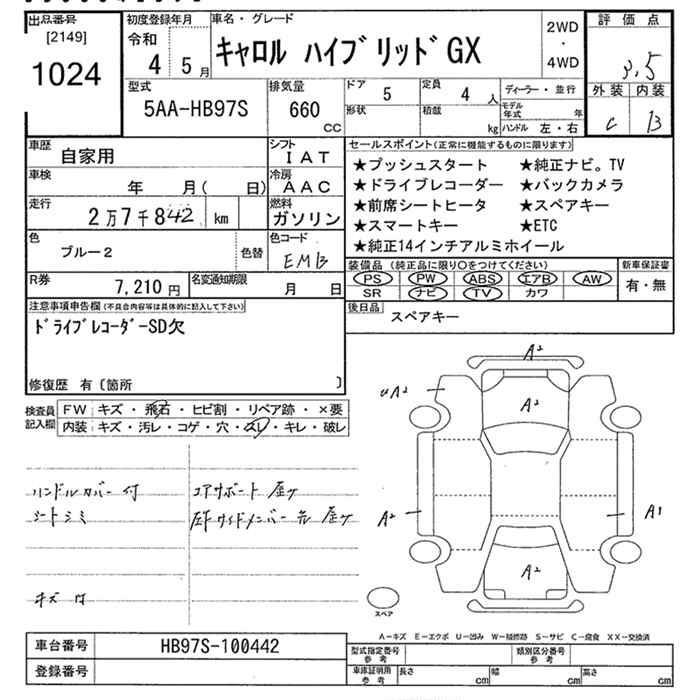 出品番号
[2149]
1024
初度登録年月
令和
4 5月
車名・グレード
キャロル ハイブリッドGX
2WD
・
4WD
評価点
3.5
外装 内装
C B
型式
5AA-HB97S
排気量
660
CC
ドア
5
定員
4 人
ディーラー・並行
形状
積載
kg
モデル年式 年
ハンドル 左・右
車歴
自家用
シフト
IAT
車検
年 月( 日)
冷房
AAC
走行
2万7千842 km
燃料
ガソリン
色
ブルー2
色替
色コード
EMB
R券
7,210 円
名変通知期限
月 日
セールスポイント(正常に機能するものに限ります)
★プッシュスタート ★純正ナビ。TV
★ドライブレコーダー ★バックカメラ
★前席シートヒータ ★スペアキー
★スマートキー ★ETC
★純正14インチアルミホイール
装備品 (純正品に限り○をつけてください)
PS PW ABS エアB AW
SR ナビ TV カワ
新車保証書
有・無
後日品
スペアキー
注意事項申告欄(不具合内容等は具体的に記入して下さい)
ドライブレコーダーSD欠
修復歴 有〔箇所 〕
検査員
記入欄
FW キズ・飛石・ヒビ割・リペア跡・×要
内装 キズ・汚レ・コゲ・穴・スレ・キレ・破レ
ハンドルカバー付
シートシミ
キズ 凹
コアサポート 歪ケ
左下サイドメンバー先 歪ケ
A2
uA2
A2
A2
A1
A2
スペア
A-キズ E-エクボ U-凹み W-補修跡 S-サビ C-腐食 XX-交換済
車台番号
HB97S-100442
登録番号
型式指定番号
参考
類別区分番号
参考
車庫証明用
参考
長さ cm
幅 cm
高さ cm